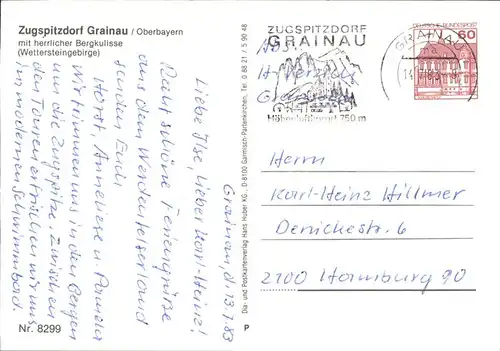 Zugspitzdorf Grainau / Oberbayern
mit herrlicher Bergkulisse
(Wettersteingebirge)
Grainau, d. 13.7.83
Liebe Ilse, lieber Karl-Heinz!
Recht schöne Feriengrüße
aus dem Werdenfelserland
senden Euch
Horst, Anneliese u. Pamela
Wir trimmen uns in den Bergen
um die Zugspitze. Zwischen
den Touren erfrischen wir uns
im modernen Schwimmbad.
Nr. 8299
Dia- und Postkartenverlag Hans Huber KG. - D-8100 Garmisch-Partenkirchen, Tel. 0 88 21 / 5 90 48
P
ZUGSPITZDORF
GRAINAU
Höhenluftkurort 750 m
GRAINAU
DEUTSCHE BUNDESPOST
60
Abs.
Grainau
Herrn
Karl-Heinz Hillmer
Denickestr. 6
2100 Hamburg 90